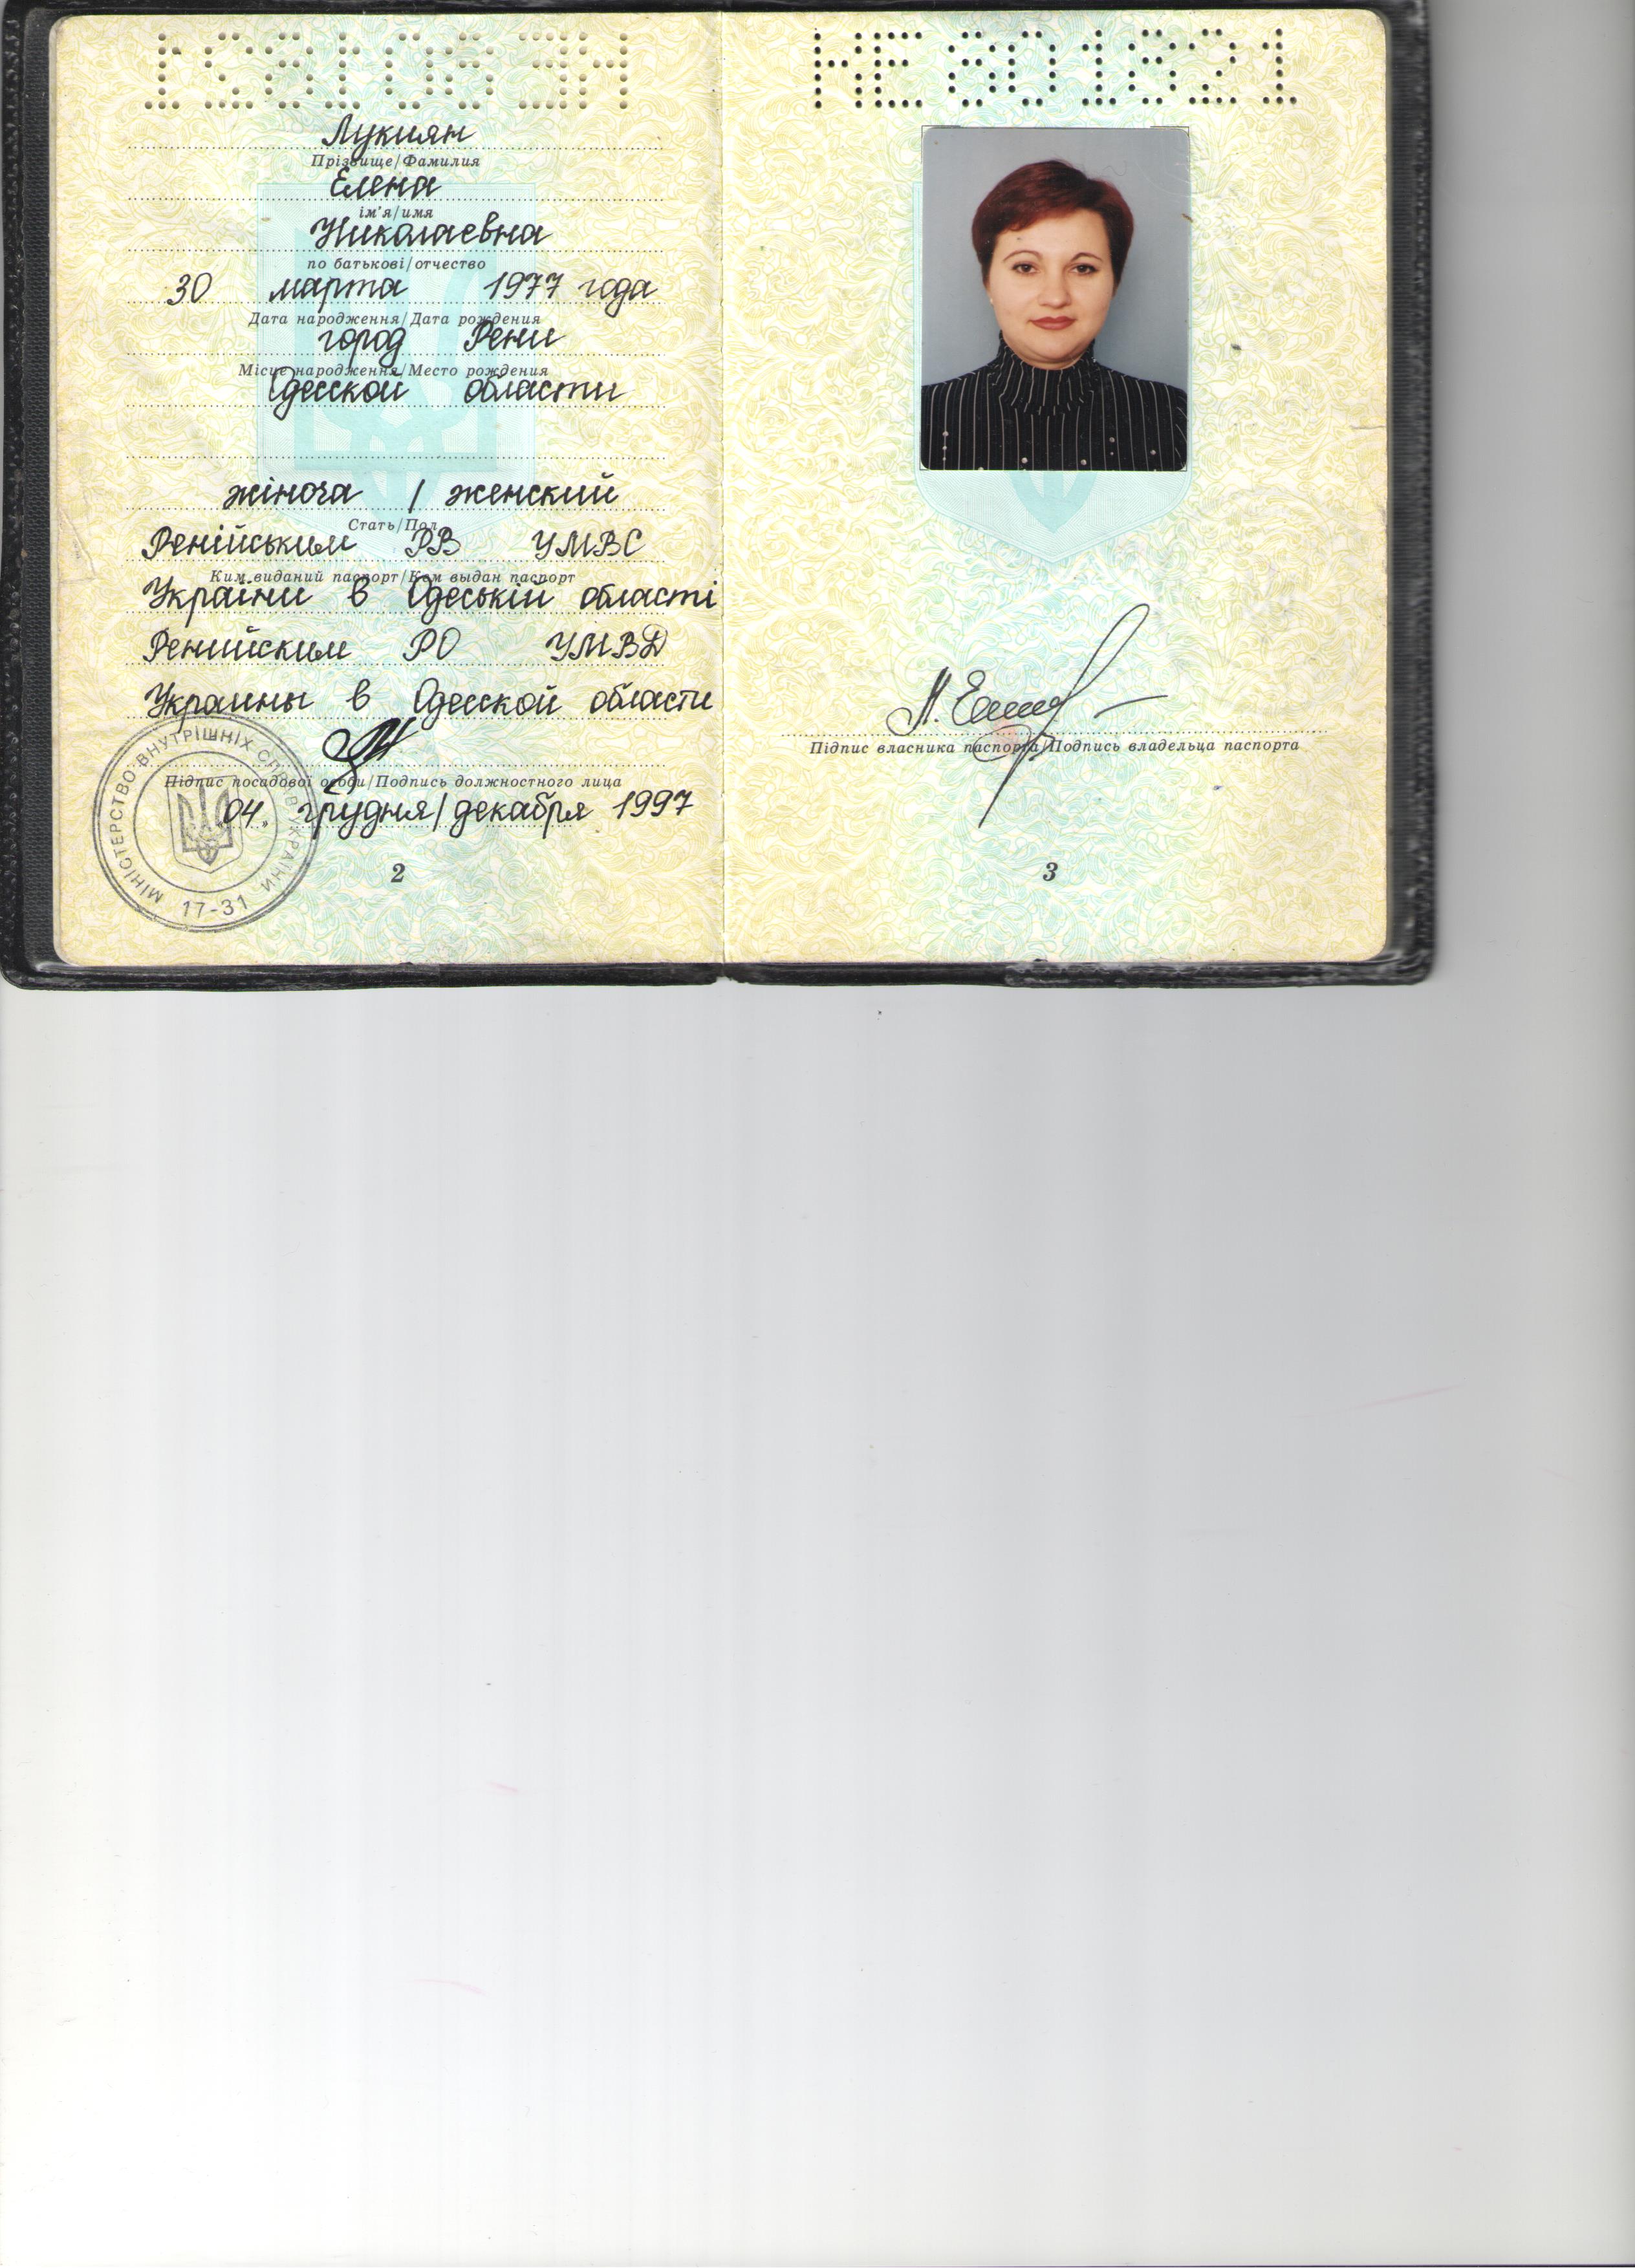 НЕ 801821
Лукиян
Прізвище/Фамилия
Елена
ім'я/имя
Николаевна
по батькові/отчество
30 марта 1977 года
Дата народження/Дата рождения
город Рени
Місце народження/Место рождения
Одесской области
жіноча / женский
Стать/Пол
Ренійським РВ УМВС
Ким виданий паспорт/Кем выдан паспорт
України в Одеській області
Ренийским РО УМВД
Украины в Одесской области
Підпис посадової особи/Подпись должностного лица
04. грудня/декабря 1997
МІНІСТЕРСТВО ВНУТРІШНІХ СПРАВ УКРАЇНИ
17-31
2
НЕ 801821
Підпис власника паспорта/Подпись владельца паспорта
3